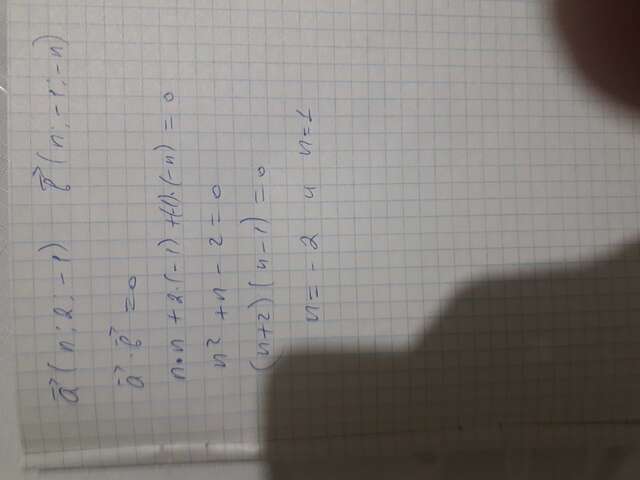 a⃗ (n; 2; -1) b⃗ (n; -1; -n)
a⃗ · b⃗ = 0
n·n + 2·(-1) + (-1)·(-n) = 0
n² + n - 2 = 0
(n+2)(n-1) = 0
n = -2 и n = 1